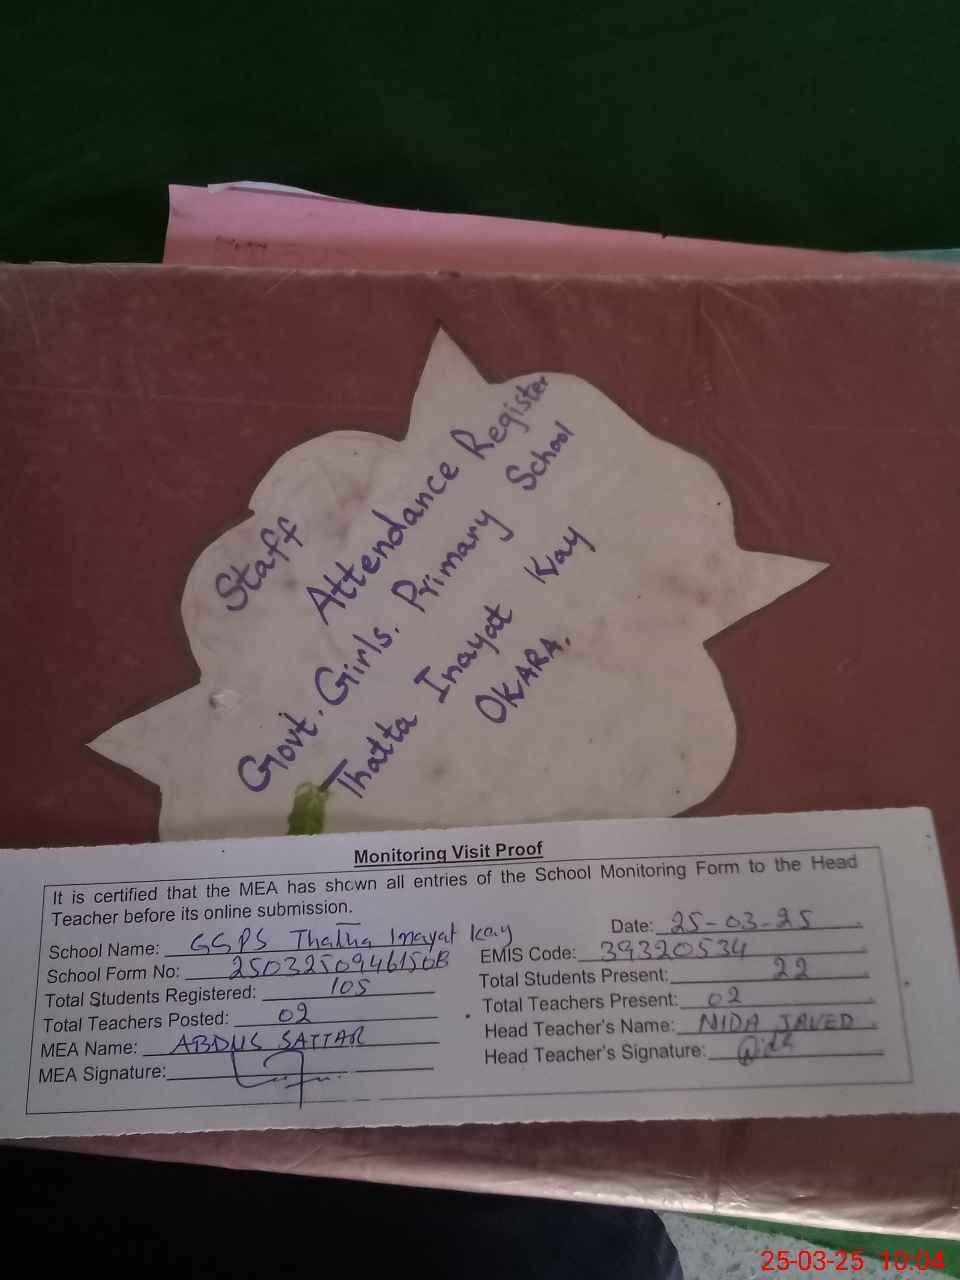 Staff
Attendance Register
Govt. Girls. Primary School
Thatta Inayat Kay
OKARA.
Monitoring Visit Proof
It is certified that the MEA has shown all entries of the School Monitoring Form to the Head
Teacher before its online submission.
School Name: GGPS Thatha Inayat Kay
Date: 25-03-25
School Form No: 2503250946150B
EMIS Code: 39320534
Total Students Registered: 105
Total Students Present: 22
Total Teachers Posted: 02
Total Teachers Present: 02
MEA Name: ABDUS SATTAR
Head Teacher's Name: NIDA JAVED
MEA Signature:
Head Teacher's Signature: Nida
25-03-25 10:04